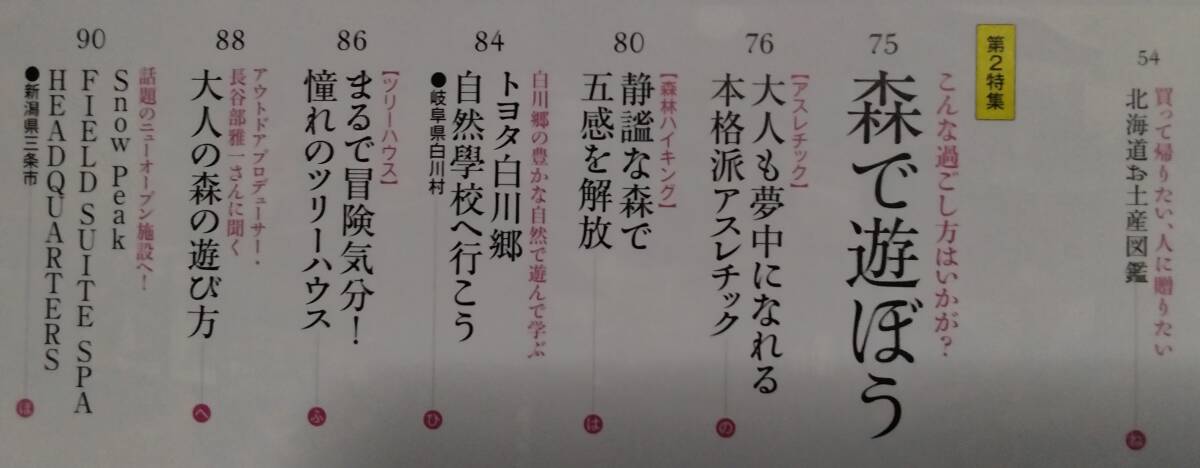 54
買って帰りたい、人に贈りたい
北海道お土産図鑑
ね
第2特集
こんな過ごし方はいかが?
75
森で遊ぼう
76
【アスレチック】
大人も夢中になれる
本格派アスレチック
の
80
【森林ハイキング】
静謐な森で
五感を解放
は
84
白川郷の豊かな自然で遊んで学ぶ
トヨタ白川郷
自然學校へ行こう
●岐阜県白川村
ひ
86
【ツリーハウス】
まるで冒険気分!
憧れのツリーハウス
ふ
88
アウトドアプロデューサー・
長谷部雅一さんに聞く
大人の森の遊び方
へ
90
話題のニューオープン施設へ!
Snow Peak
FIELD SUITE SPA
HEADQUARTERS
●新潟県三条市
ほ